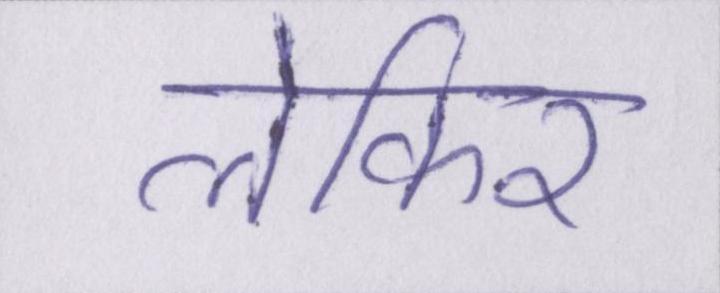 लेकिर